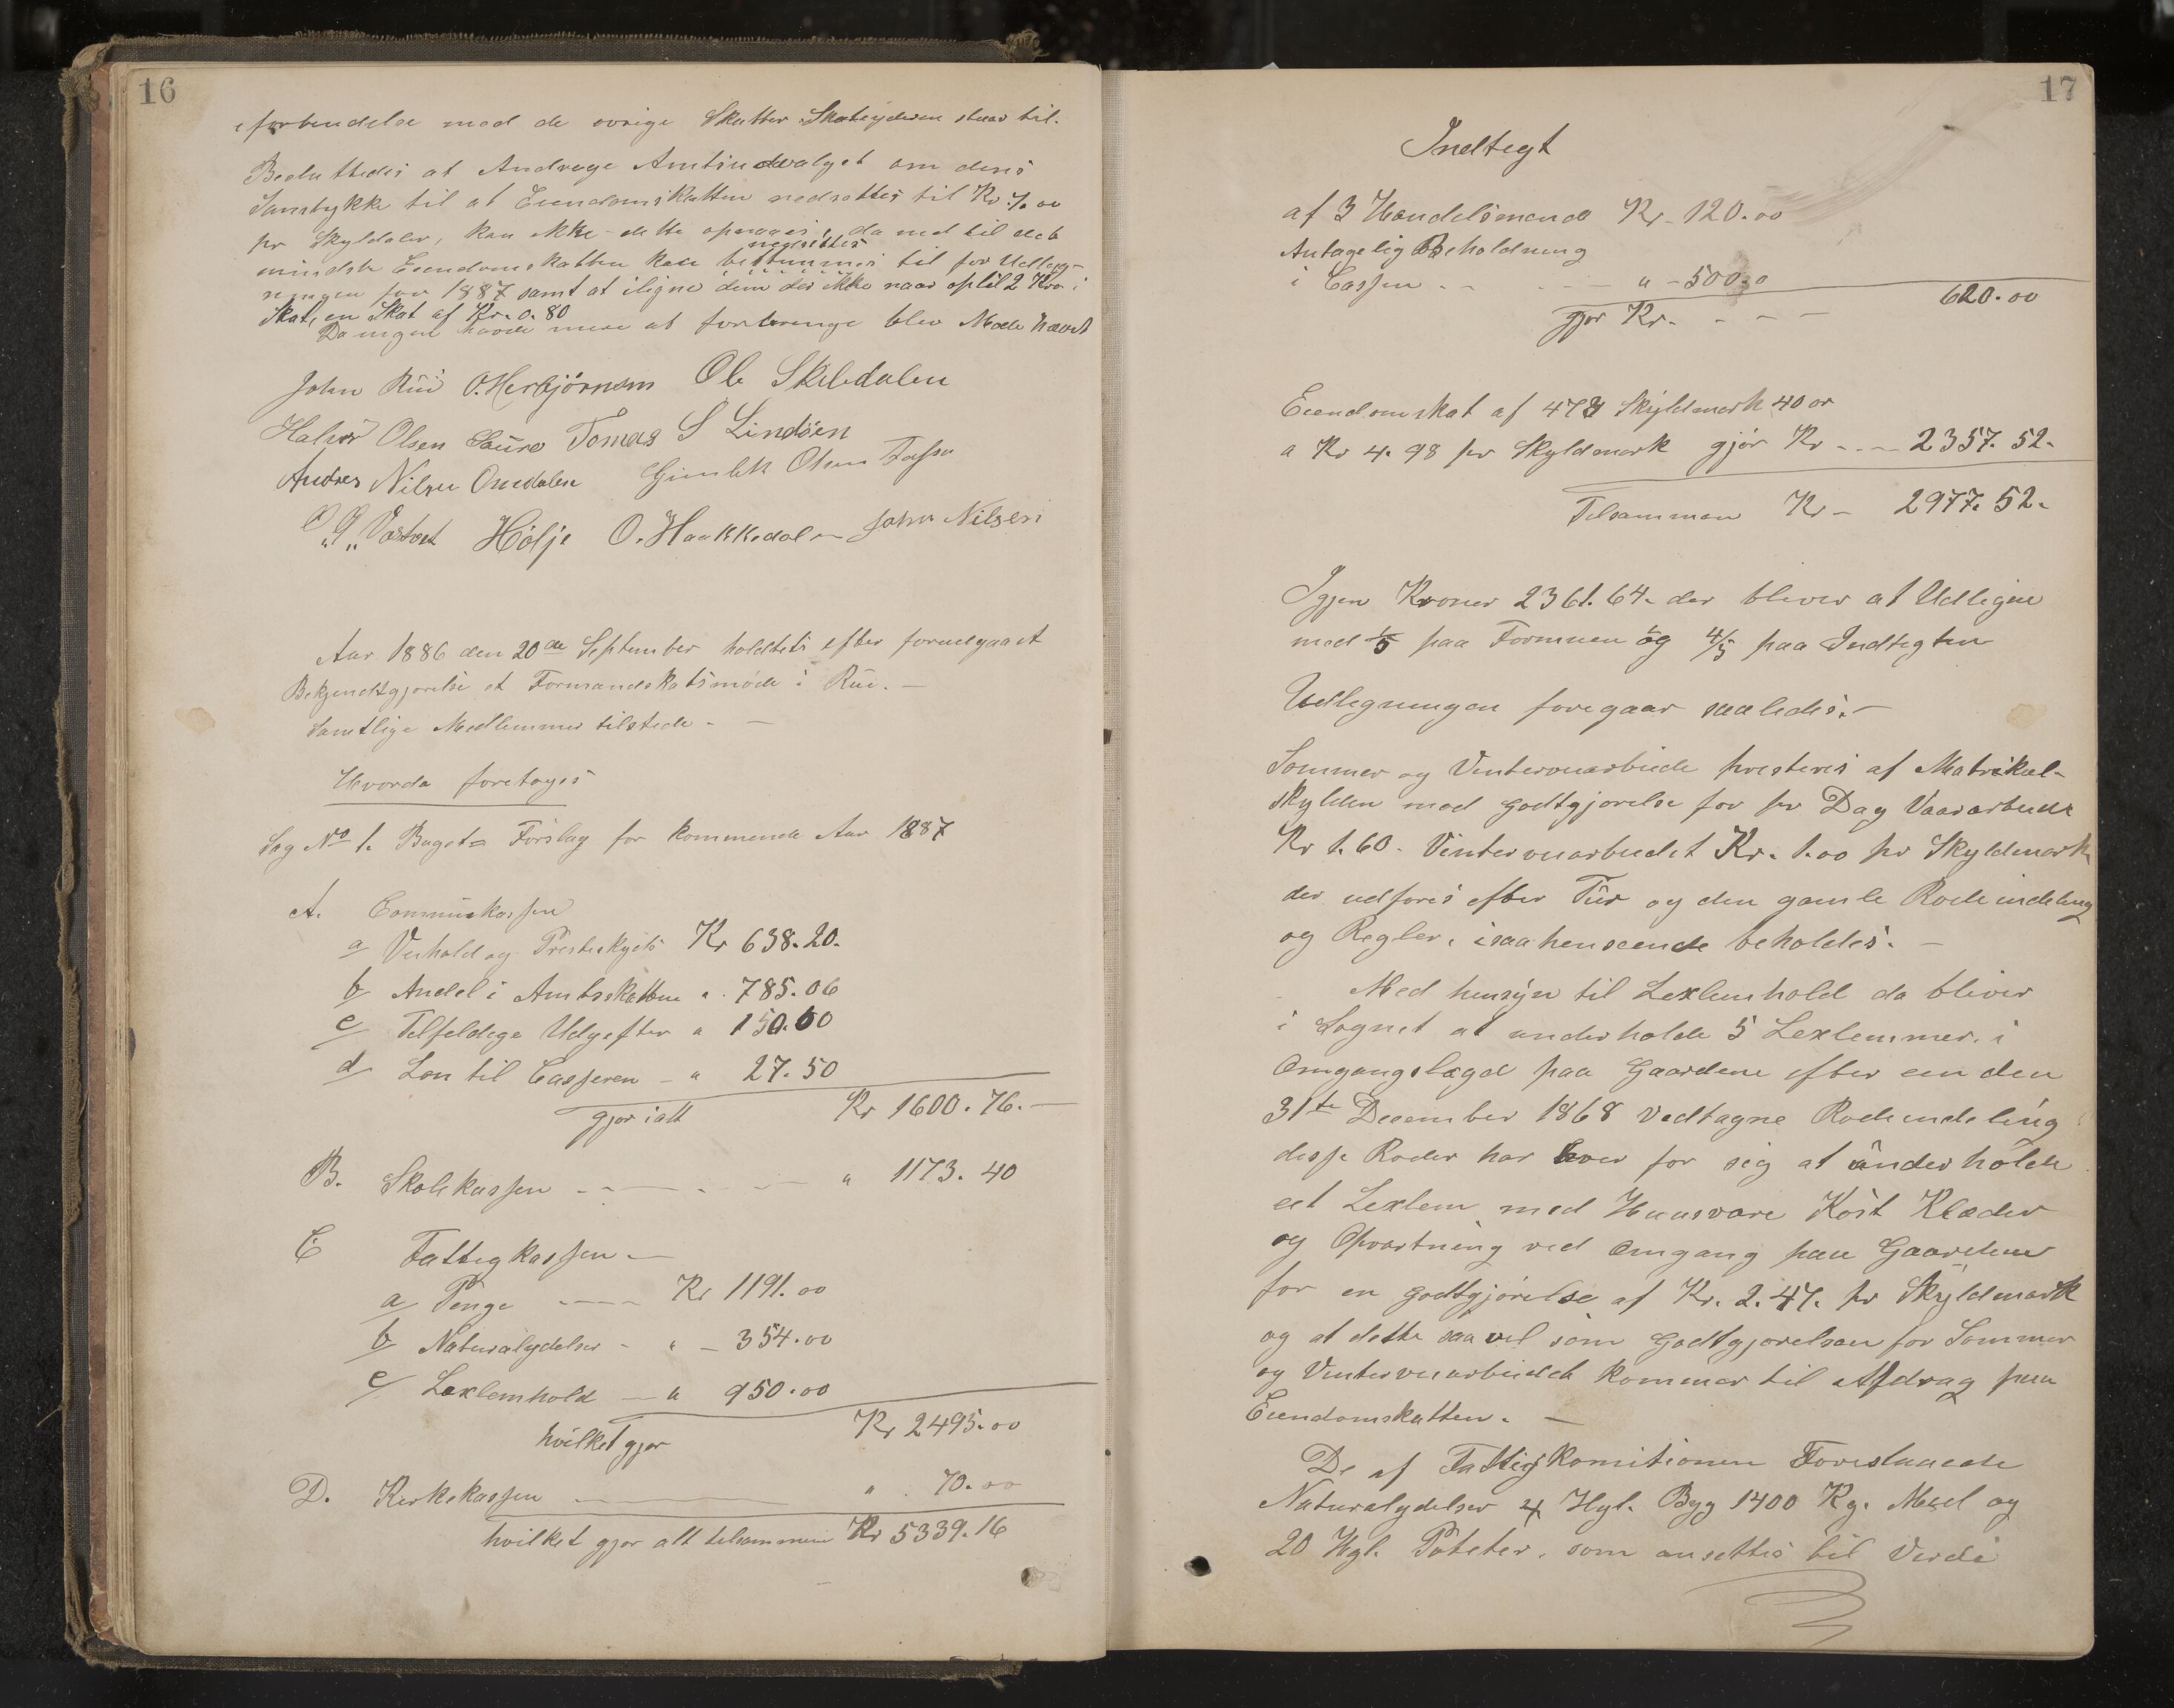 16
i forbindelse med de øvrige Skatter Skatteyderen svarer til.
Besluttedes at Andrage Amtsudvalget om deres
Samtykke til at Eiendomsskatten nedsættes til Kr 7.00
pr Skyldaler, kan ikke dette opnaaes, da ned til det
negsættes
mindste Eiendomsskatten kan bestemmes til for Udlig-
ningen for 1887 samt at iligne dem der ikke naar op til 2 Kro i
Skat, en Skat af Kr. 0.80
Da ingen havde mere at forbringe blev Møde hævet
John Rui O. Herbjørnsen Ole Skiledalen
Halvor Olsen Saure Tomas S Lindöen
Andres Nilsen Omdalen Gunlek Olsen
O G Vastvet Hölje O. Haakkedalen John Nilsen
Aar 1886 den 20de September holdtes efter forudgaaet
Bekjendtgjorelse et Formandskabsmöde i Rui. —
Samtlige Medlemmer tilstede. —
Hvorda foretoges
Sag No 1. Buget= Forslag for kommende Aar 1887
A. Communkassen
a Veihold og Presteskyds Kr 638.20.
b Andel i Amtsskatten " 785.06
c Tilfeldige Udgifter " 150.00
d Løn til Casseren — " 27.50
gjør ialt Kr 1600.76. —
B. Skolekassen — — — " 1173.40
C Fattigkassen —
a Penge — Kr 1191.00
b Naturalydelser - " — 354.00
c Lexlemhold — " 950.00
hvilket gjør Kr 2495.00
D. Kirkekassen — " 70.00
hvilket gjør alt tilsammen Kr 5339.16
17
Indtegt
af 3 Handelsmend Kr — 120.00
Antagelig Beholdning
i Cassen - - — " — 500.0
gjør Kr. - — — 620.00
Eiendomskat af 473 Skyldmark 40 ør
a Kr 4.98 pr Skyldmark gjör Kr - - — 2357.52.
Tilsammen Kr — 2977.52.
Igjen Kroner 2361.64. der bliver at Udligne
med 1/5 paa Formuen og 4/5 paa Indtegten
Udlegningen foregaar saaledes. —
Sommer og Vinterveiarbeide presteres af Matrikel-
skylden med godtgjorelse for pr Dag Vaararbeide
Kr 1.60. Vinterveiarbeidet Kr. 1.00 pr Skyldmark
der udføres efter Tur og den gamle Rodeindeling
og Regler, i saa henseende beholdes. —
Med hensyn til Lexlemhold da bliver
i Sognet at underholde 5 Lexlemmer. i
Omgangslægd paa Gaardene efter een den
31te December 1868 vedtagne Rodeindeling
disse Roder har hver for sig at underholde
eet Lexlem med Huusvære Köst Klæder
og Opvartning ved omgang paa Gaardene
for en godtgjörelse af Kr. 2.47. pr Skyldmark
og at dette saa vel som Godtgjorelsen for Sommer
og Vinterveiarbeidet kommer til Afdrag paa
Eiendomskatten. —
De af Fattigkomitionen Foreslaaede
Naturalydelser 4 Hgl. Byg 1400 Kg. Meel og
20 Hgl. Poteter, som ansettes til Verdi